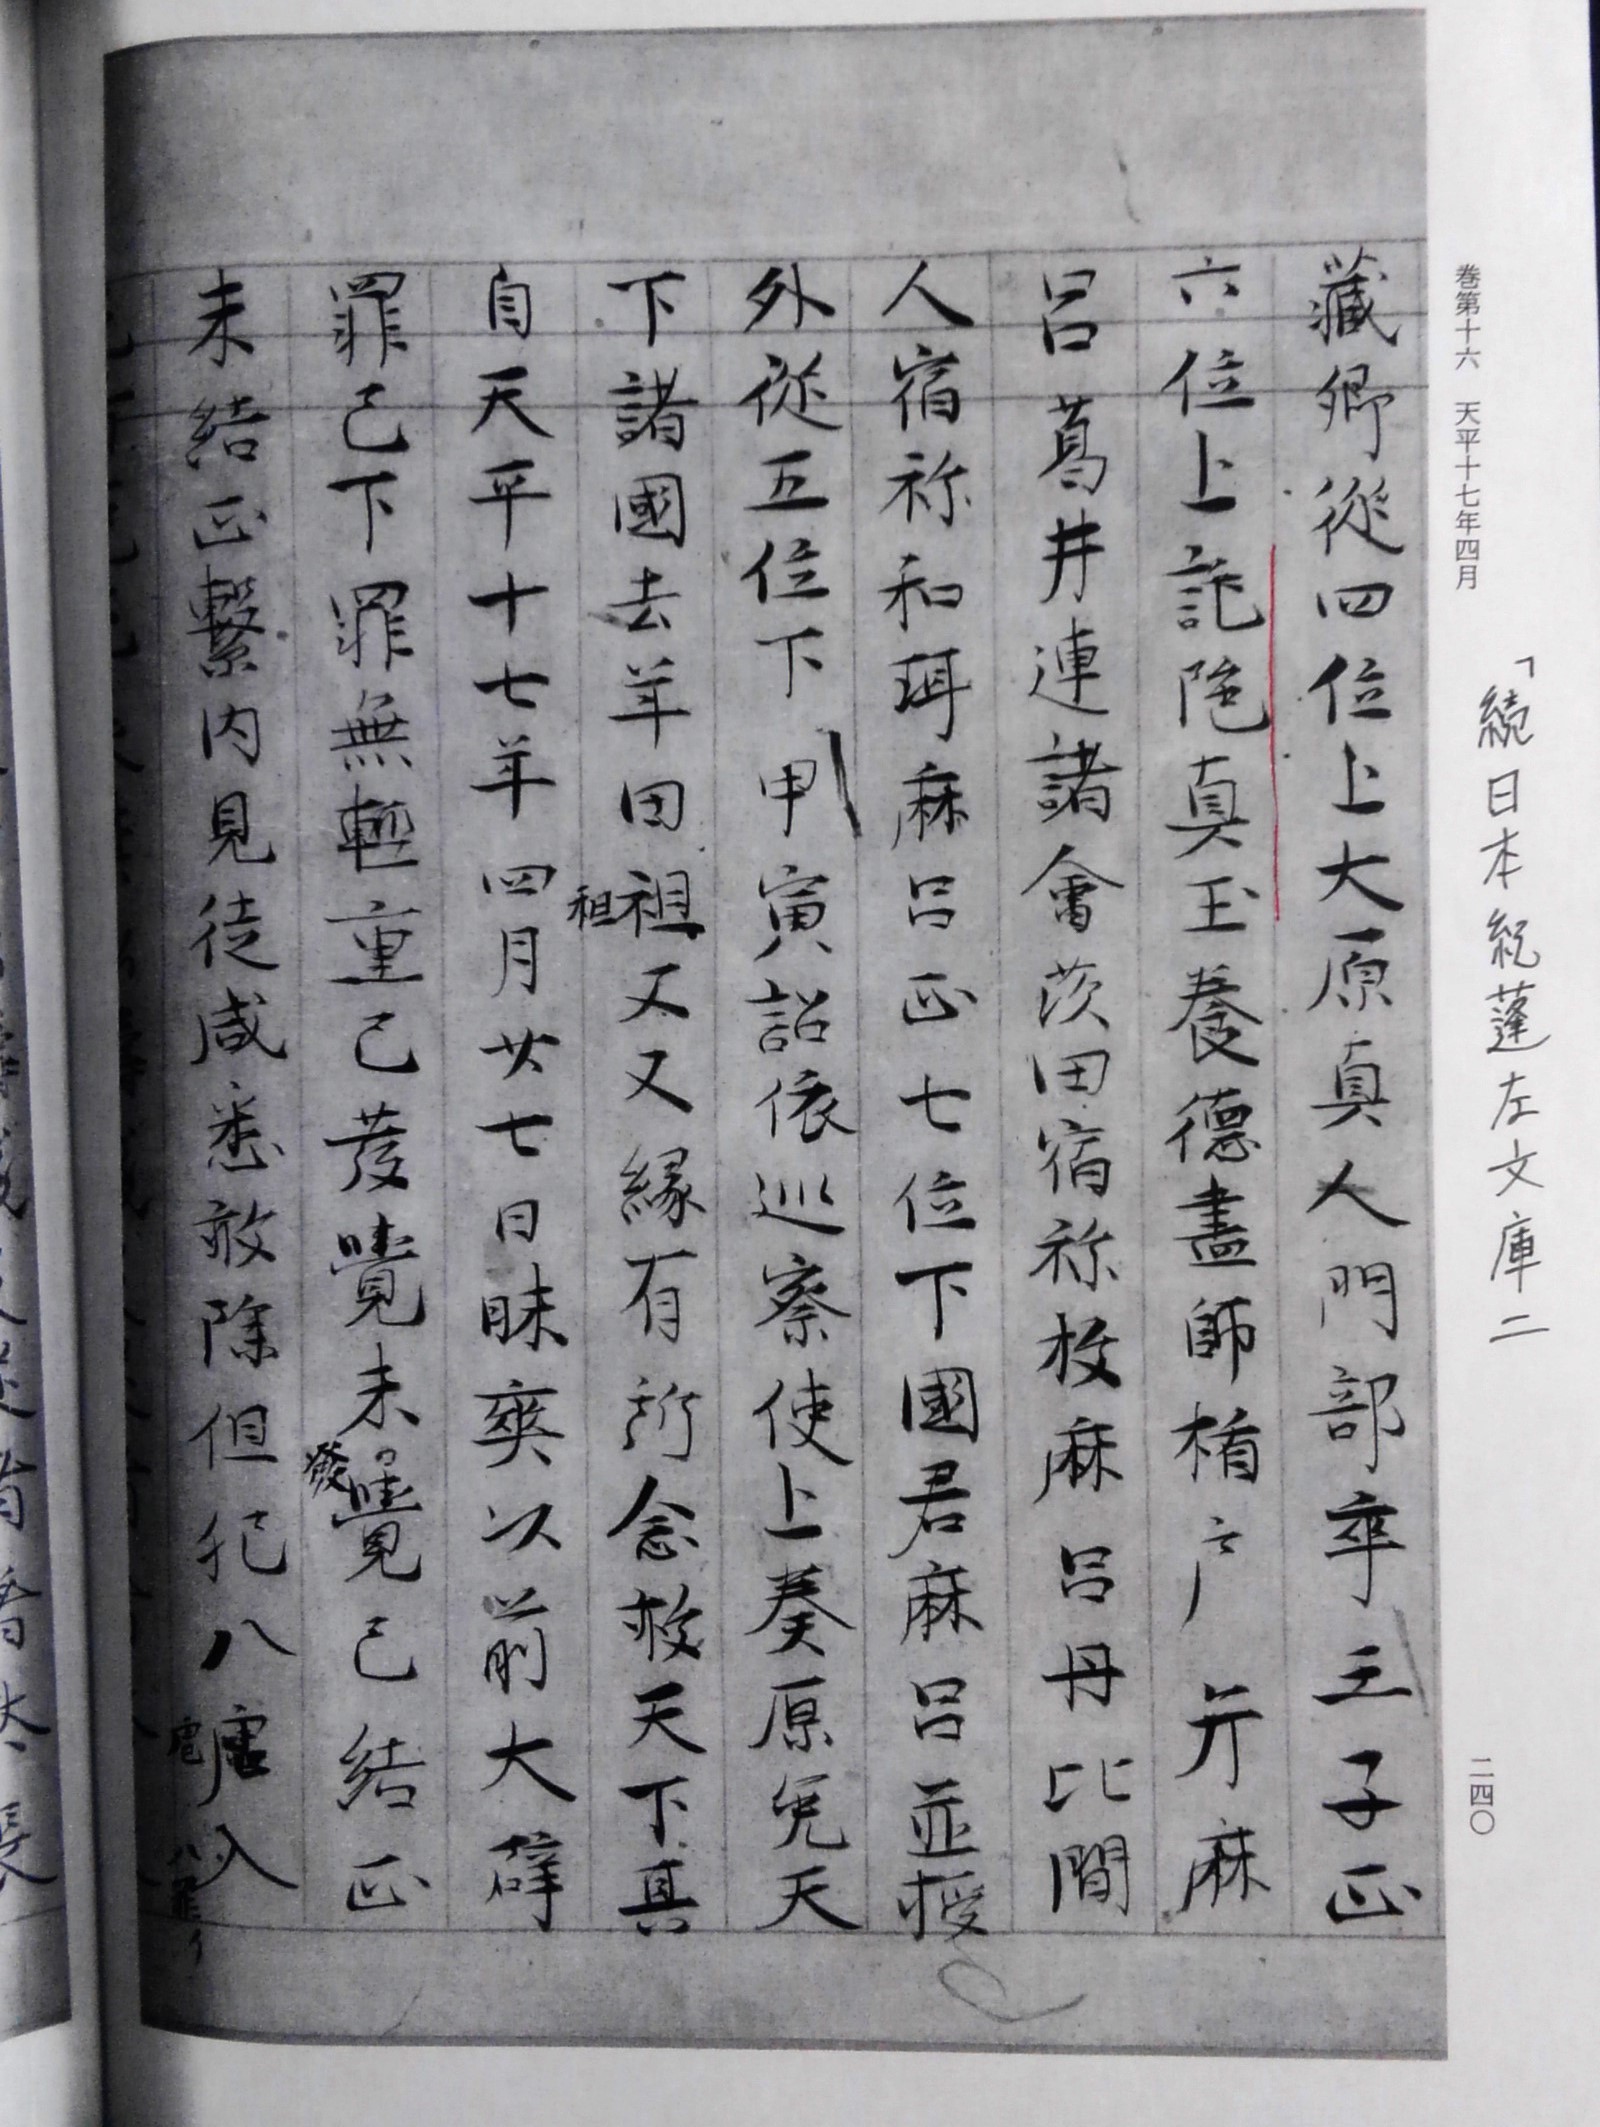 巻第十六　天平十七年四月
二四〇
「続日本紀蓬左文庫二
藏卿従四位上大原真人門部卒王子正
六位上託陁真玉養徳畫師楯戸弁麻
呂葛井連諸會茨田宿祢枚麻呂丹比間
人宿祢和珥麻呂正七位下國君麻呂並授
外従五位下甲寅詔依巡察使上奏原免天
下諸國去年田祖又又縁有所念救天下真
租
自天平十七年四月廿七日昧爽以前大辟
罪已下罪無輕重已發覺未覺已結正
發
未結正繋内見徒咸悉放除但犯八入